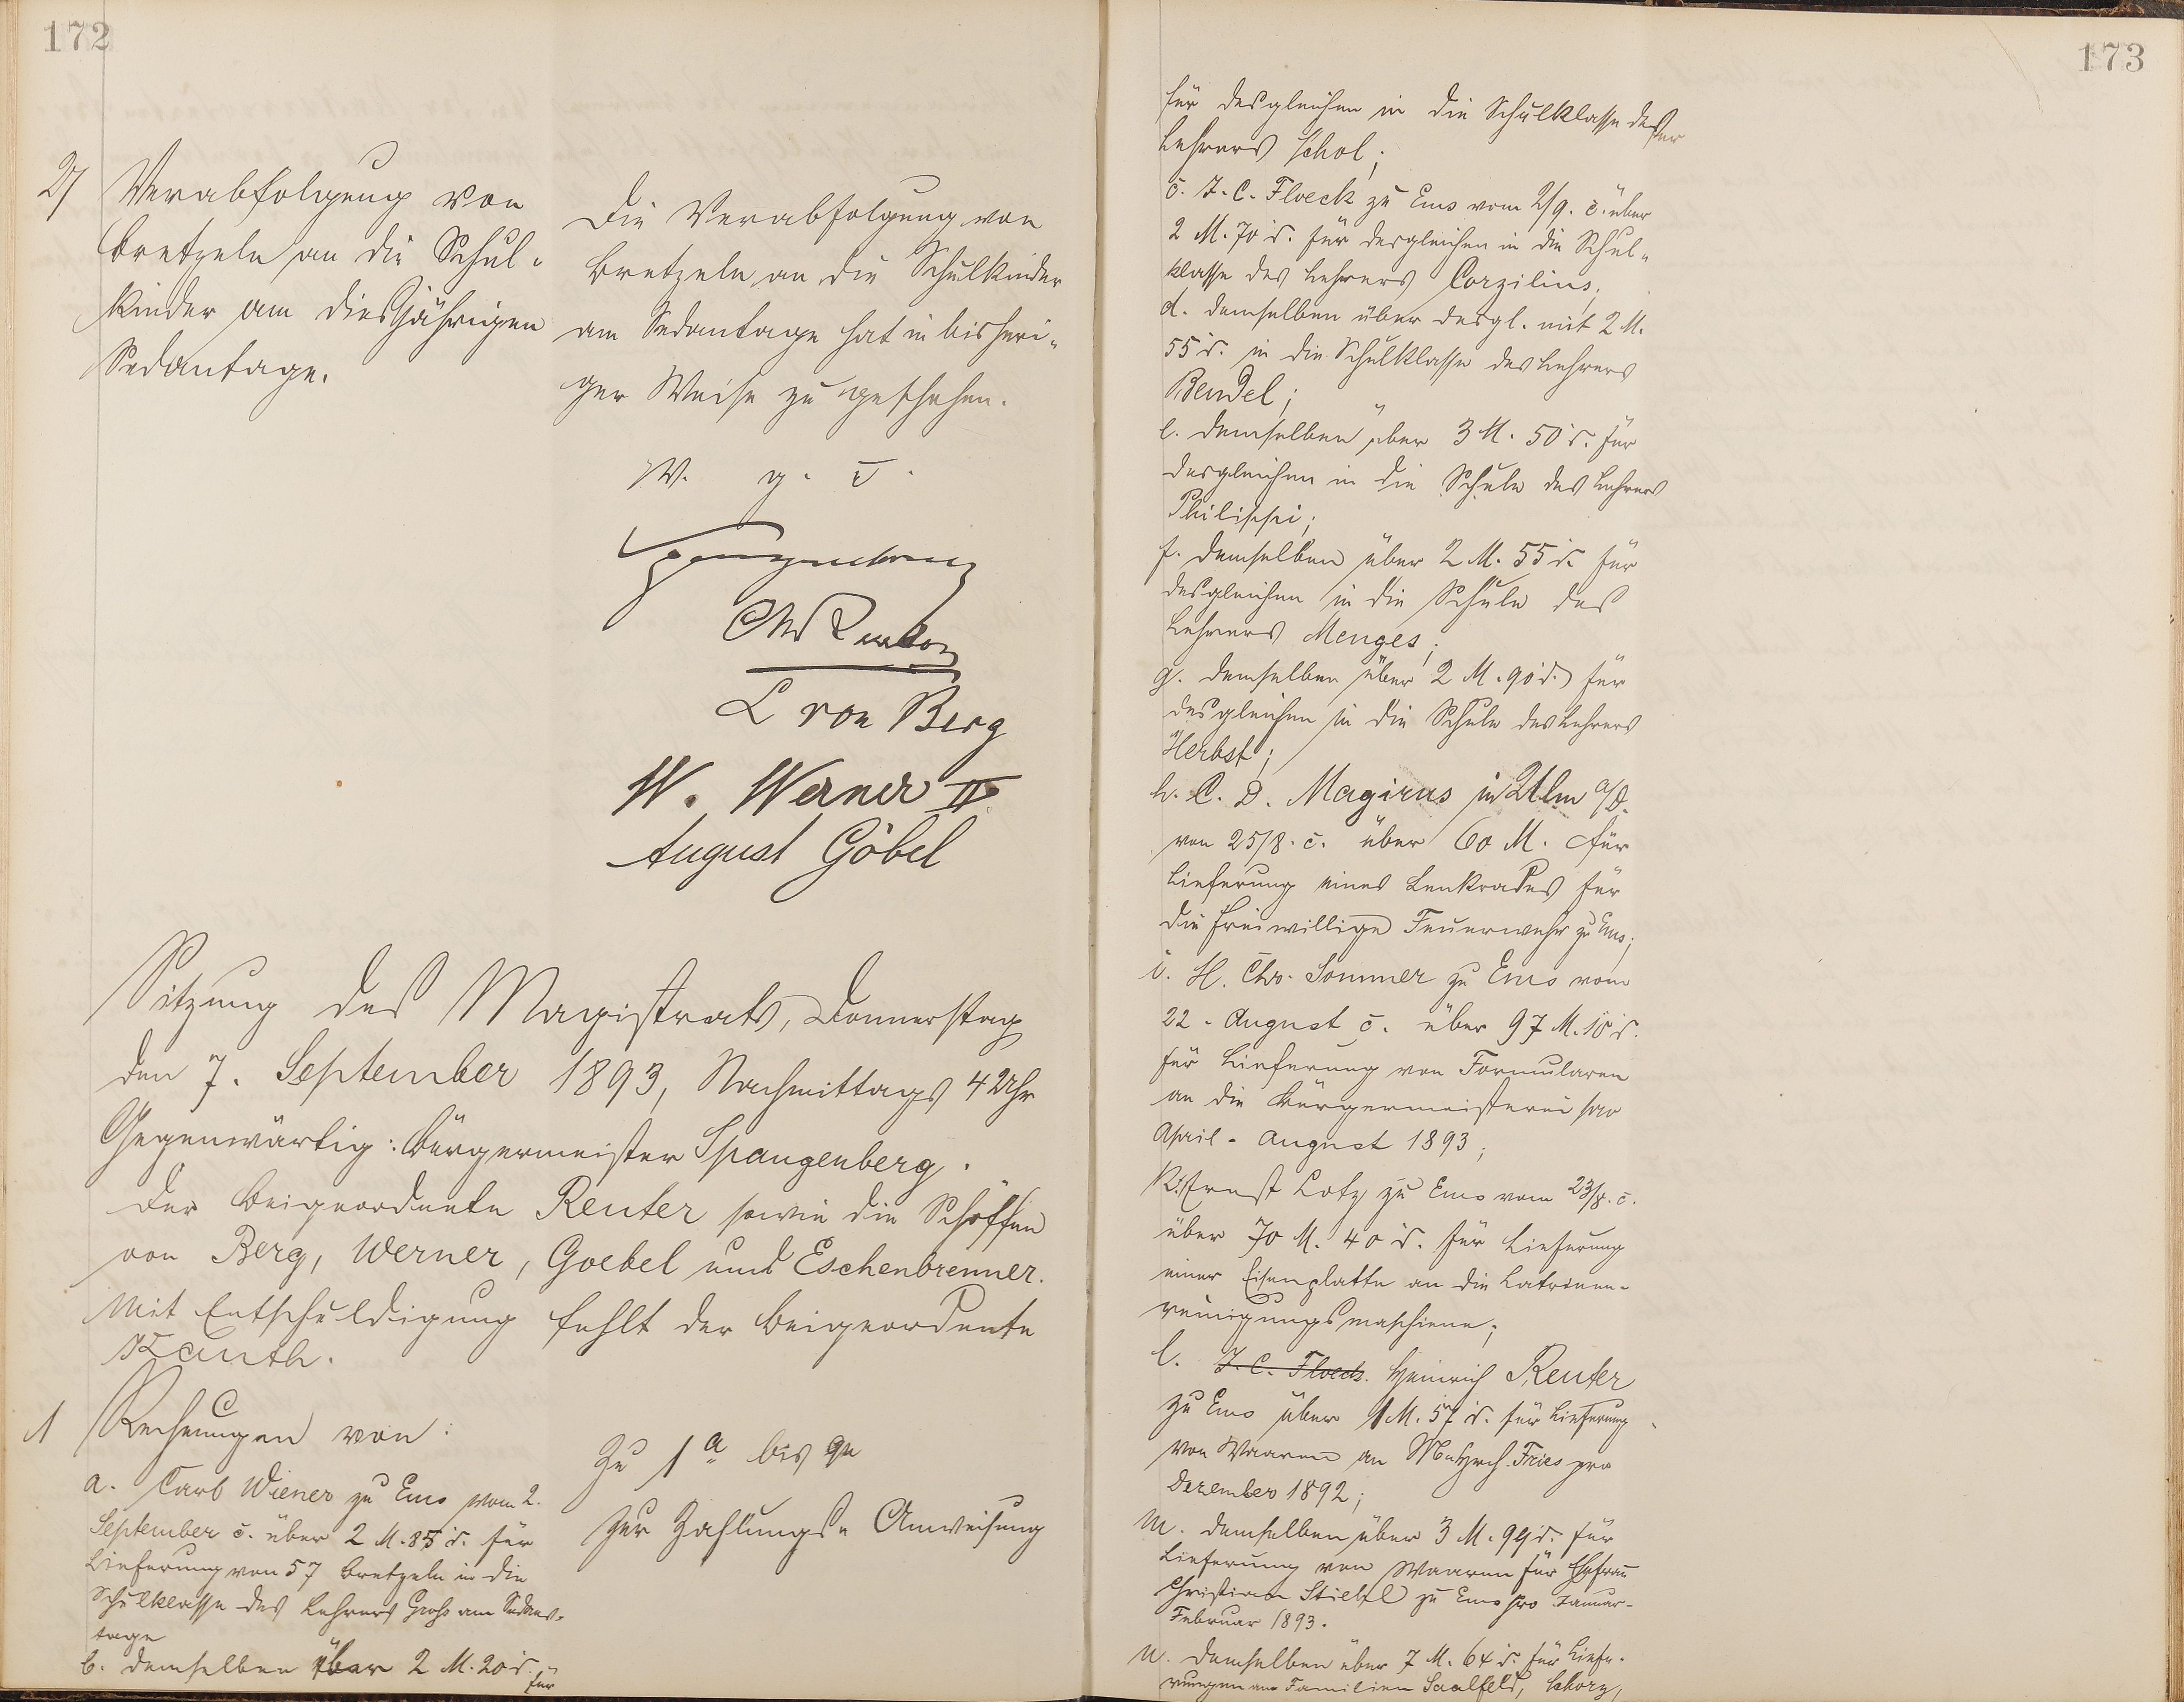 172
2) Verabfolgung von
Bretzeln an die Schul-
kinder am diesjährigen
Sedantage.
Die Verabfolgung von
Bretzeln an die Schulkinder
am Sedantage hat in bisheri-
ger Weise zu geschehen.
W. g. o.
Spangenberg
L von Berg
W. Werner II
August Göbel
Sitzung des Magistrats, Donnerstag
den 7. September 1893, Nachmittags 4 Uhr
Gegenwärtig: Bürgermeister Spangenberg.
Der Beigeordnete Reuter sowie die Schöffen
von Berg, Werner, Goebel und Eschenbrenner.
Mit Entschuldigung fehlt der Beigeordnete
Kauth.
1 Rechnungen von:
a. Carl Wiener zu Ems vom 2.
September c. über 2 M. 85 d. für
Lieferung von 57 Bretzeln in die
Schulklasse des Lehrers Groß am Sedans-
tage
b. demselben über 2 M. 20 d. für
Zu 1 a bis qu
zur Zahlungs- Anweisung
173
für desgleichen in die Schulklasse des
Lehrers Schol;
c. J. C. Floeck zu Ems vom 2/9. c. über
2 M. 70 d. für desgleichen in die Schul-
klasse des Lehrers Corzilius;
d. demselben über desgl. mit 2 M.
55 d. in die Schulklasse des Lehrers
Bendel;
e. demselben über 3 M. 50 d. für
desgleichen in die Schule des Lehrers
Philippi;
f. demselben über 2 M. 55 d. für
desgleichen in die Schule des
Lehrers Menges;
g. demselben über 2 M. 90 d. für
desgleichen in die Schule des Lehrers
Herbst;
h. C. D. Magirus in Ulm a/D.
von 25/8. c. über 60 M. für
Lieferung eines Lenkrades für
die freiwillige Feuerwehr zu Ems;
i. H. Chr. Sommer zu Ems vom
22. August c. über 97 M. 10 d.
für Lieferung von Formularen
an die Bürgermeisterei pro
April - August 1893;
k. Ernst Lotz zu Ems vom 23/8. c.
über 70 M. 40 d. für Lieferung
einer Eisenplatte an die Latrinen-
reinigungsmaschine;
l. J. C. Floeck. Heinrich Reuter
zu Ems über 1 M. 57 d. für Lieferung
von Waaren an Fries pro
Dezember 1892;
m. demselben über 3 M. 99 d. für
Lieferung von Waaren für Ehefrau
Christian Stiehl zu Ems pro Januar-
Februar 1893.
n. demselben über 7 M. 64 d. für Liefe-
rungen an Familien Saalfeld,